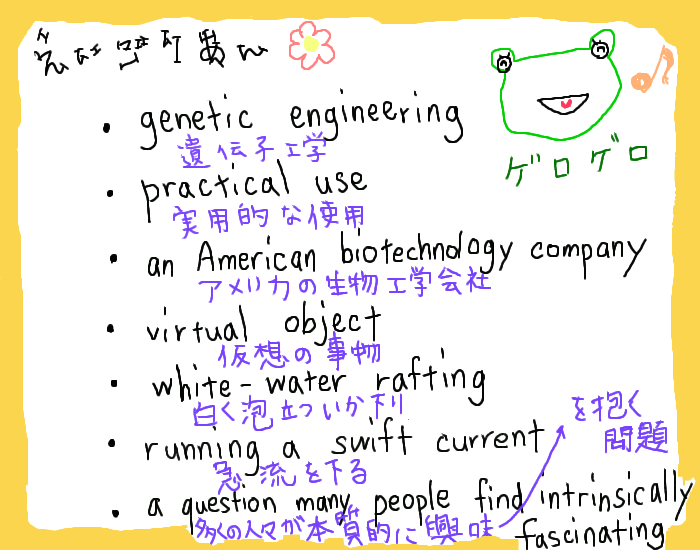 ゲロゲロ
• genetic engineering
遺伝子工学
• practical use
実用的な使用
• an American biotechnology company
アメリカの生物工学会社
• virtual object
仮想の事物
• white-water rafting
白く泡立ついか下り
• running a swift current
急流を下る
• a question many people find intrinsically
fascinating
多くの人々が本質的に興味
を抱く
問題